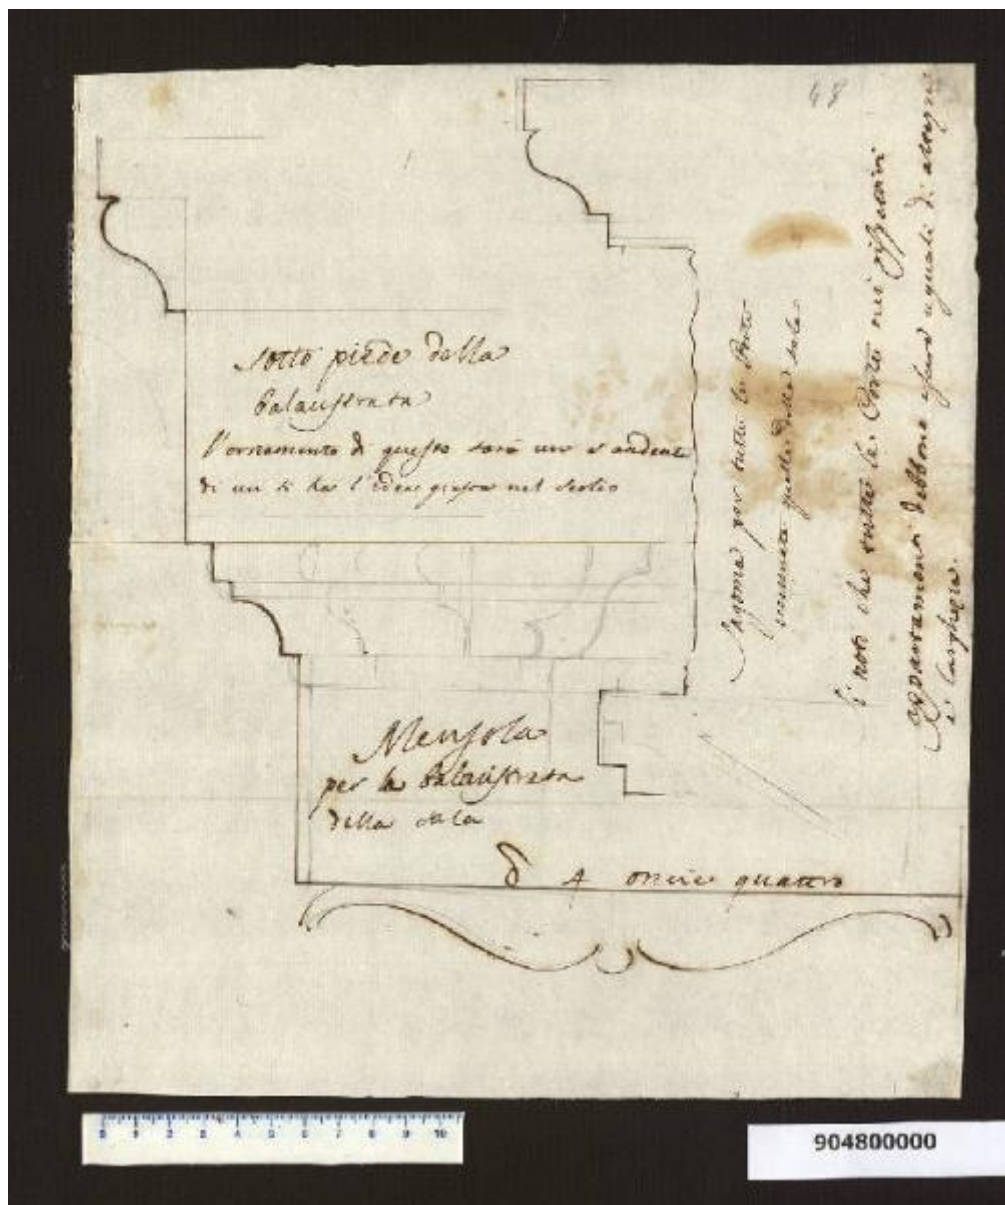 48
sotto piede della
balaustrata
l'ornamento di questo sarà un
di un si ha l'idea nel
Mensola
per la balaustrata
della sala
4 oncie quattro
Sagoma per tutte le Porte
quelle della sala
si noti che tutte le Porte nei
appartamenti debbono essere uguali di
e larghezza.
0 1 2 3 4 5 6 7 8 9 10
904800000